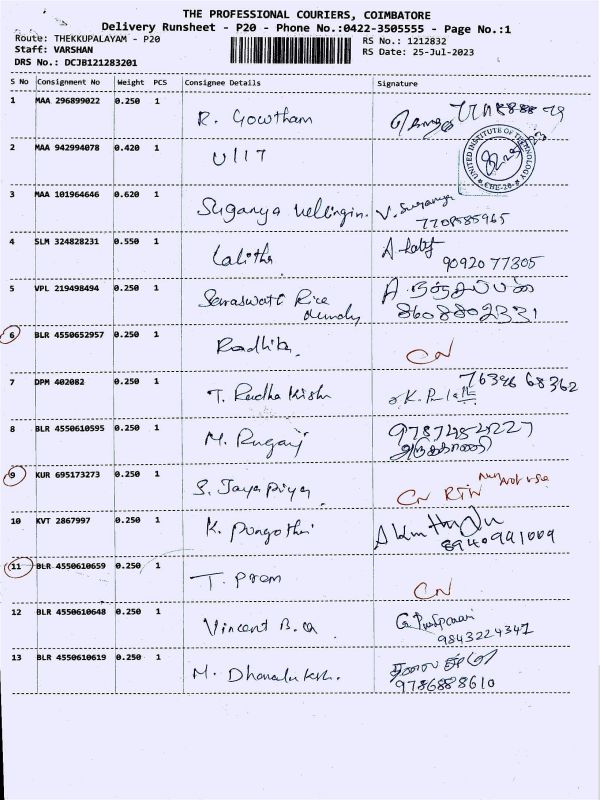 THE PROFESSIONAL COURIERS, COIMBATORE
Delivery Runsheet - P20 - Phone No.:0422-3505555 - Page No.:1
Route: THEKKUPALAYAM - P20
RS No.: 1212832
Staff: VARSHAN
RS Date: 25-Jul-2023
DRS No.: DCJB121283201
S No Consignment No Weight PCS Consignee Details Signature
1 MAA 296899022 0.250 1 R. Gowtham
2 MAA 942994078 0.420 1 UIIT
UNITED INSTITUTE OF TECHNOLOGY
CBE-20
3 MAA 101964646 0.620 1 Suganya V. Suganya
7708585965
4 SLM 324828231 0.550 1 Lalitha
9092077305
5 VPL 219498494 0.250 1 Saraswati Rice
8608802331
6 BLR 4550652957 0.250 1 Radhika CN
7 DPM 402082 0.250 1 T. Radha Kishn 76396 68362
8 BLR 4550610595 0.250 1 M. 9787484227
9 KUR 695173273 0.250 1 S. Jaya priya CN RTN
10 KVT 2867997 0.250 1 K. Pungothai
8940991009
11 BLR 4550610659 0.250 1 T. Prem CN
12 BLR 4550610648 0.250 1 Vincent B.a
9843224347
13 BLR 4550610619 0.250 1 M.
9786888610